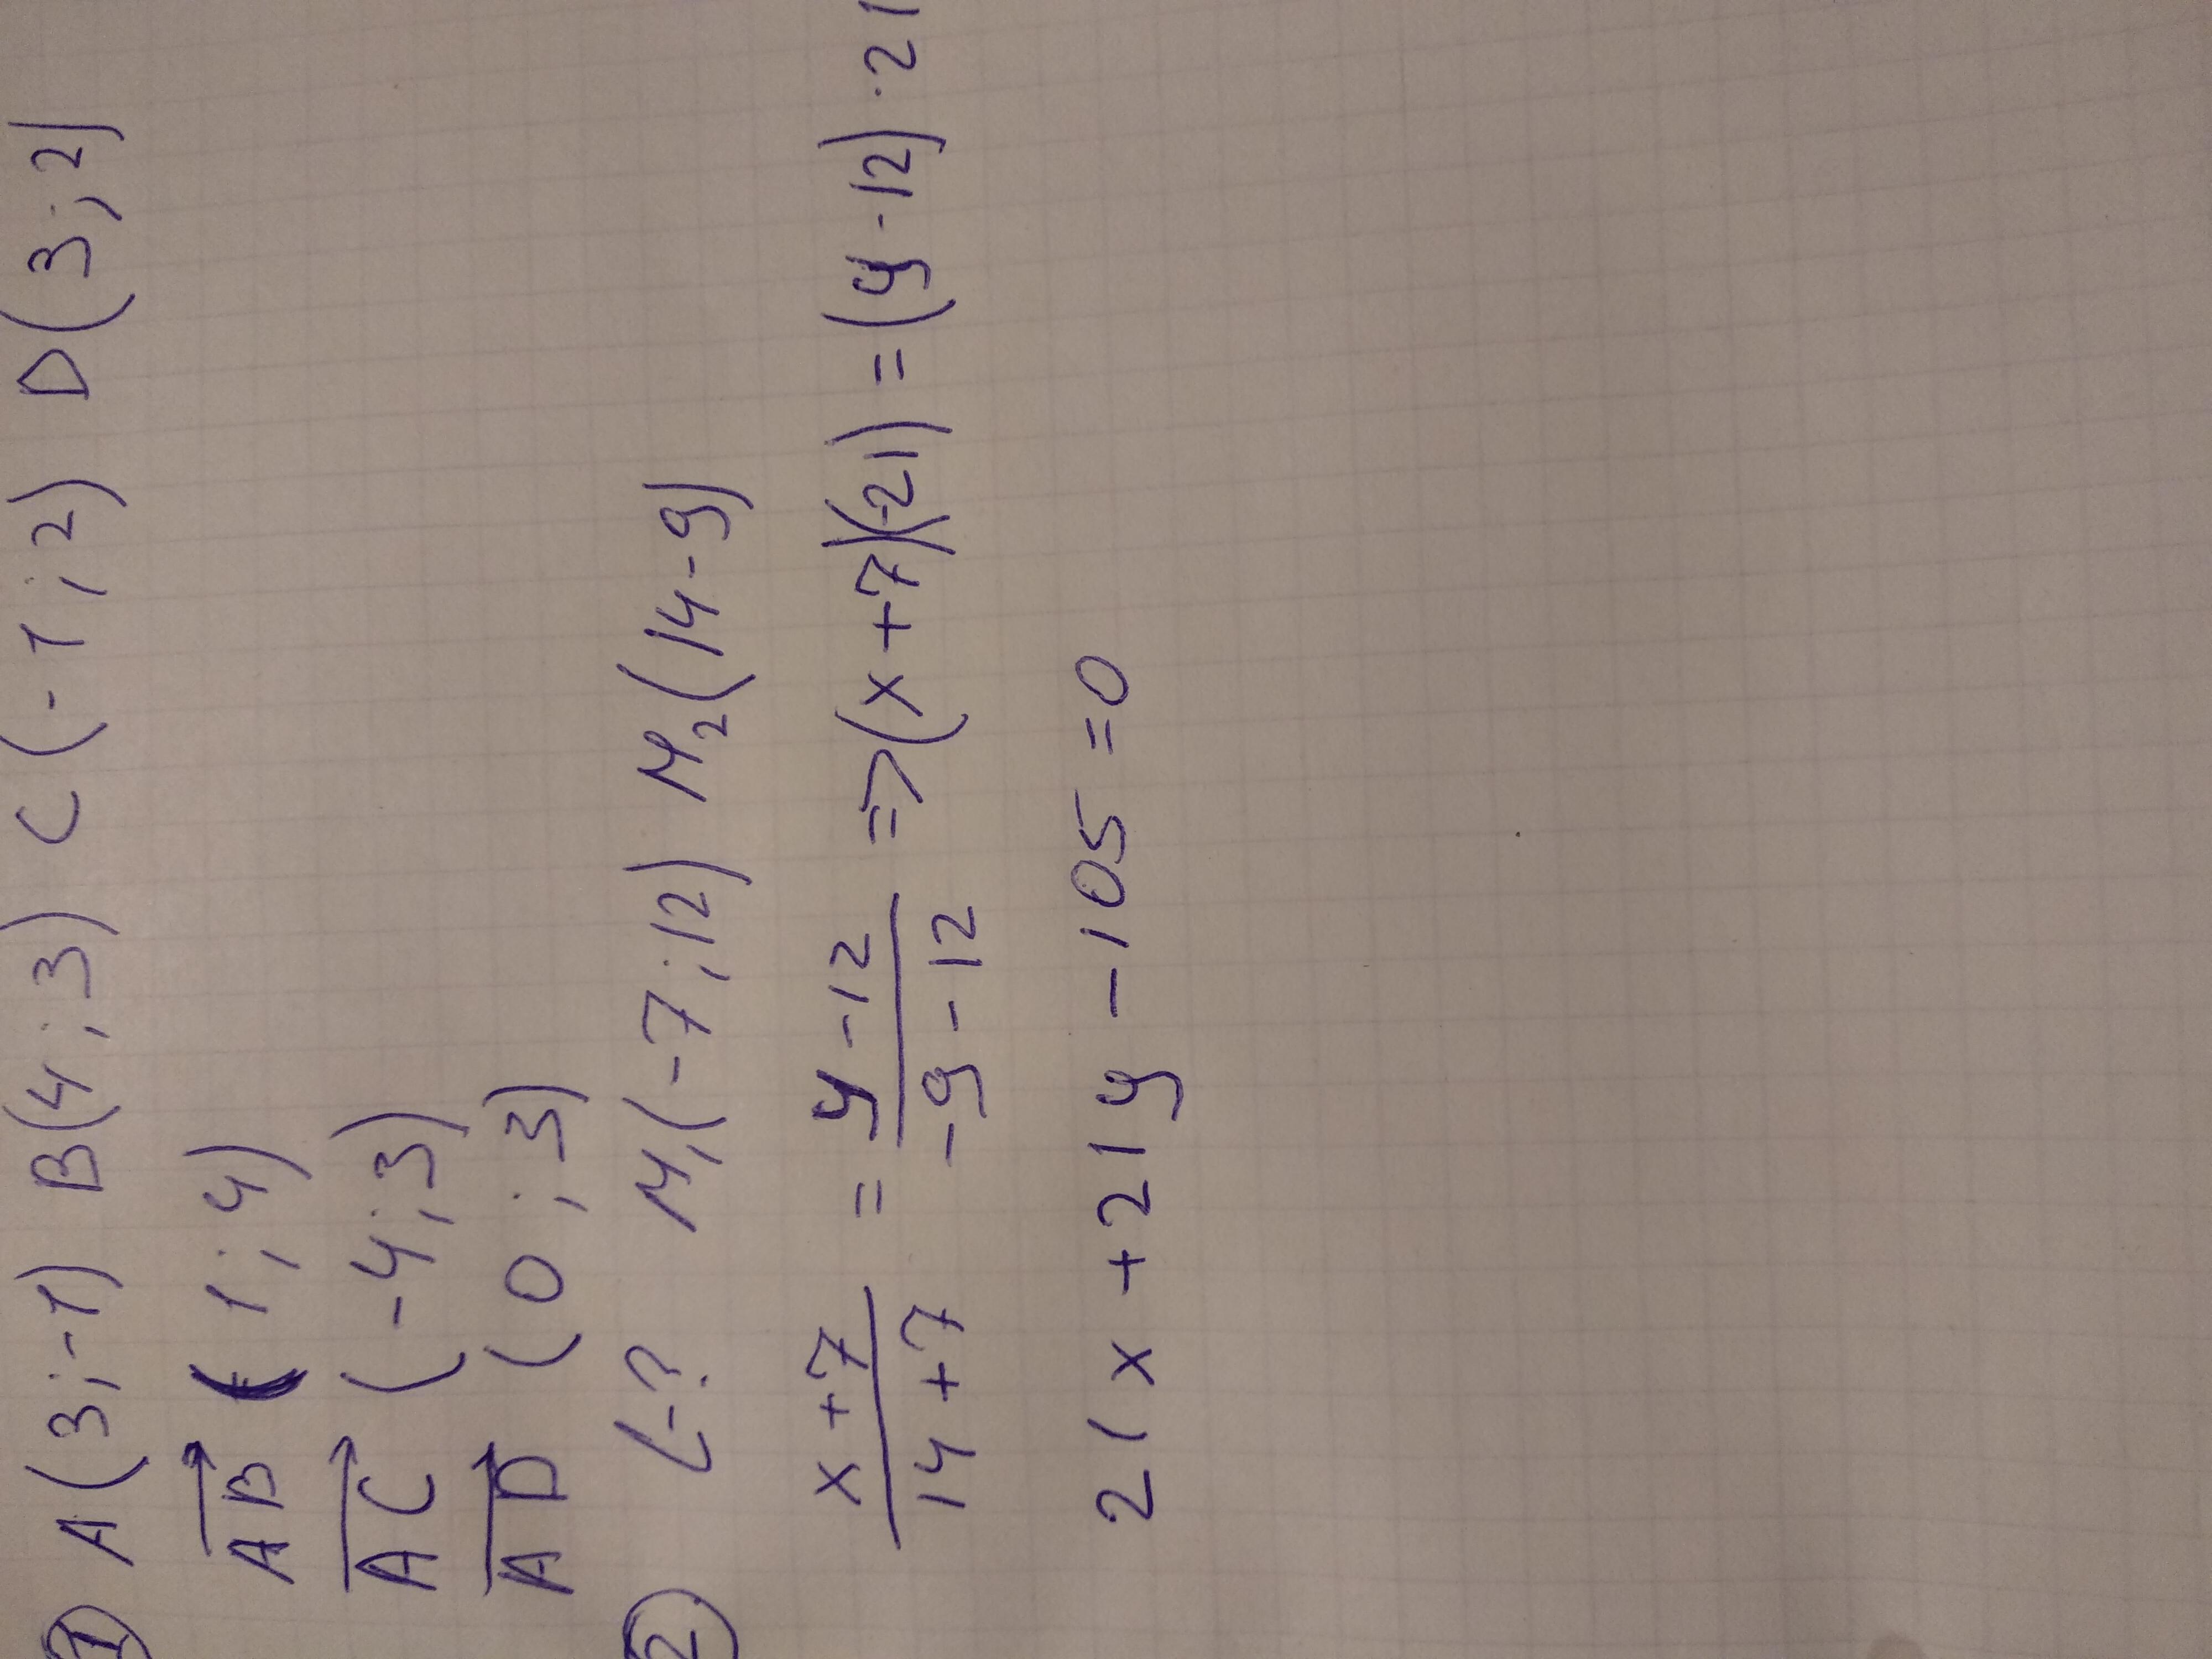 1 A(3;-1) B(4;3) C(-1;2) D(3;2)
AB (1;4)
AC (-4;3)
AD (0;3)
2 L-? M₁(-7;12) M₂(14-9)
x+7/14+7 = y-12/-9-12 =>(x+7)(-21)=(y-12)·21
21x+21y-105=0